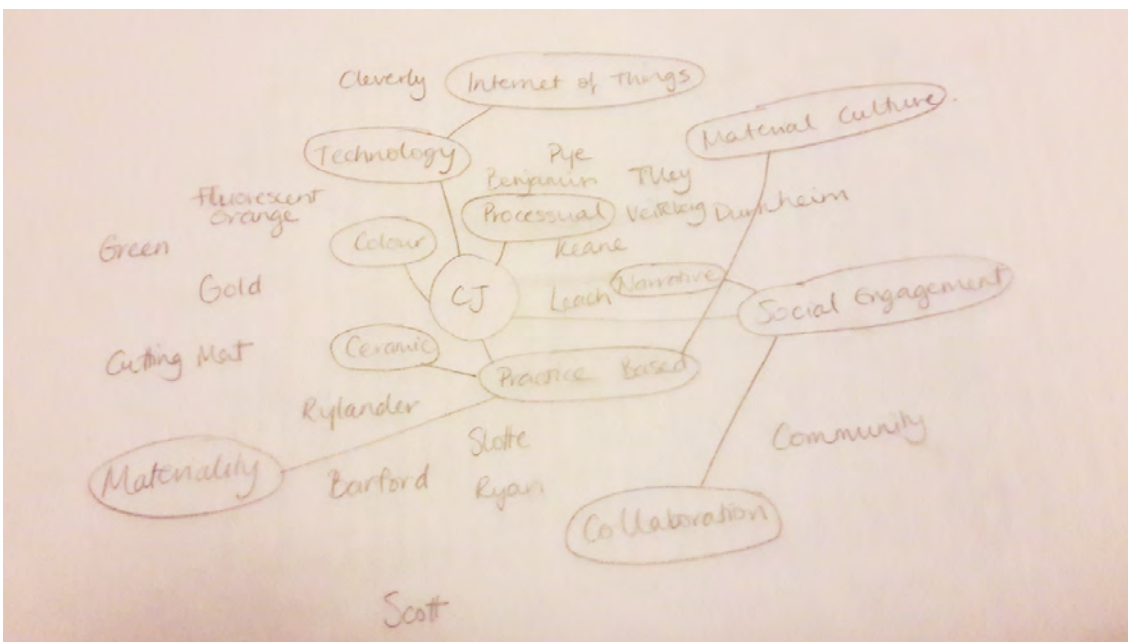 Cleverly
Internet of Things
Material Culture.
Technology
Pye
Benjamin
Tilley
Fluorescent
Orange
Processual
Durnheim
Green
Colour
Keane
Gold
CJ
Leach
Narrative
Social Engagement
Cutting Mat
Ceramic
Practice Based
Rylander
Slotte
Community
Materiality
Barford
Ryan
Collaboration
Scott